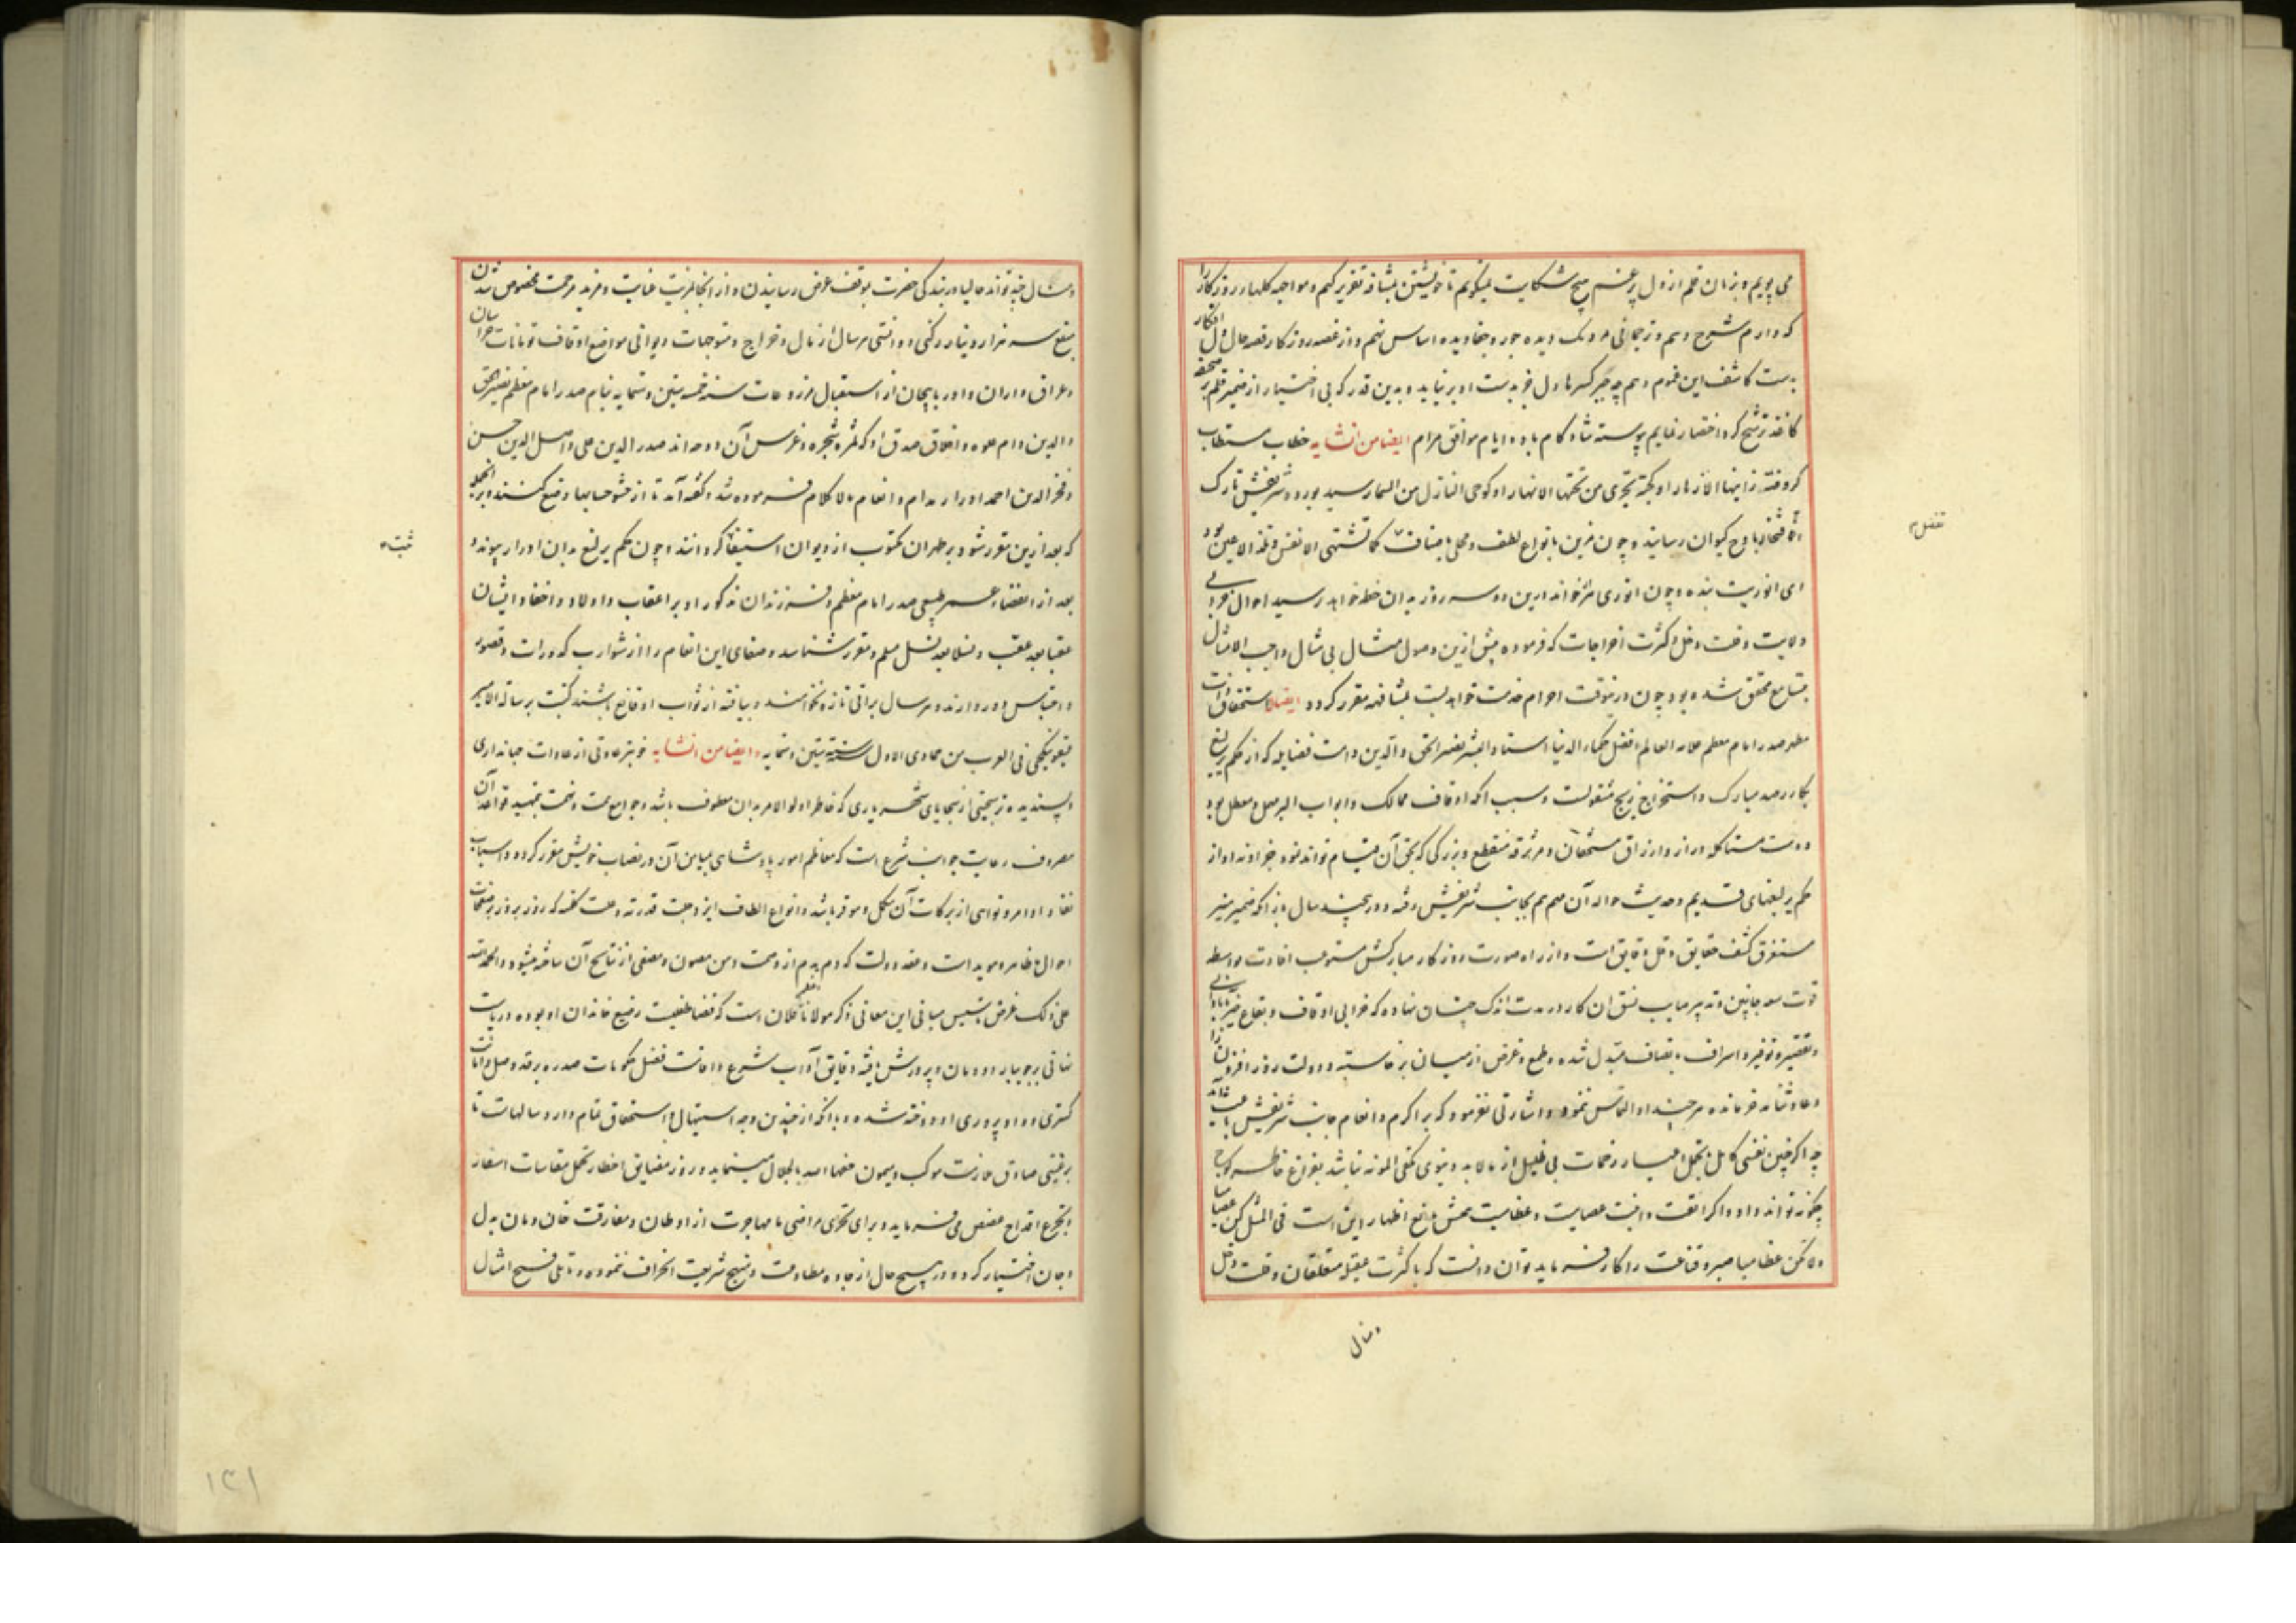 می پویم و بزبان قلم از دل پر غم هیچ شکایت نمیگویم تا خویشتن بمشافهه تقریر کنم و مواجهه گلهای روزگار را
که دارم شرح دهم و ترجمانی مردمک دیده جور و جفا دیده اساس نهم و از غصه روزگار قصه حال دل افکار
کاشف این غموم دهم چه هر کس با دل خود بدست او بر نیاید و بدین قدر که بی اختیار از ضمیر قلم بر صفحه
کاغذ ترشح کرد اختصار نمایم پیوسته شادکام باد و ایام موافق مرام ایضا من انشایه خطاب مستطاب
کروضة زانها الازهار او کجنة تجری من تحتها الانهار او کوحی النازل من السماء رسید و ورود شریفش تارک
افتخار باوج کیوان رسانید و چون مزین بانواع لطف و محلی باصناف کما تشتهی الانفس و تلذ الاعین بود
ای انوریت بنده و چون انوری هزار خواند درین دو سه روز بدان خط خواهد رسید احوال خرابی
ولایت و قلت دخل و کثرت اخراجات که فرموده پیش ازین وصول مثال بی مثال واجب الامتثال
بتسامع محقق شده بود چون درینوقت احرام خدمت خواهد بست بمشافهه مقرر گردد ایضا استحقاق ذات
مطهر صدر امام معظم علامه العالم افضل حکماء الدنیا استاد البشر نصیر الحق والدین دامت فضایله که از حکم یرلیغ
بکار رصد مبارک و استخراج زیج مشغولست و سبب آنکه اوقاف ممالک و ابواب البر مهمل و معطل بود
و دست مستاکله دراز و ارزاق مستحقان و مرتزقه منقطع و بزرگی که بحق آن قیام تواند نمود جز او نه او از
حکم یرلیغهای قدیم و حدیث حواله آن مهم هم بجانب شریفش رفته و در چند سال باز آنکه ضمیر منیر
مستغرق کشف حقایق و حل دقایق است و از راه صورت روزگار مبارکش مستوعب افادت بواسطه
قوت سعد جانبین و تدبیر صایب نسق آن کار در مدت اندک چنان نهاده که خرابی اوقاف و بقاع خیر بابادانی
و تقصیر و توفیر و اسراف بانصاف مبدل شده و طمع و غرض از میان برخاسته و دولت روز افزون را
دعا و ثنا نه فرمانده هر چند او التماس ننموده و اشارتی نفرمود که بر اکرم و انعام جانب شریفش باعث آمد
چه اگر چنین نفسی کامل بتحمل اعباء زحمات بی قلیل از مالابد دنیوی مکفی المونه نباشد بفراغ خاطر
چگونه تواند داد و اگر انفت و عظامیت همش مانع اظهار این است فی المثل کن عصامیا
ولا تکن عظامیا صبر و قناعت را کار فرماید توان دانست که با کثرت متعلقان و قلت دخل
و منال
تفضل
و منال چه تواند حالیا در بندگی حضرت بموقف عرض رسانیدن و از آنجا بمزیت عنایت و مزید مرحمت مخصوص شدن
بمبلغ سه هزار دینار رکنی و دوانقی هر سال از مال و خراج و متوجهات دیوانی مواضع اوقاف تومانات خراسان
و عراق و اران و اذربایجان از استقبال مزروعات سنه خمس ستین و ستمایه بنام صدر امام معظم نصیر الحق
والدین دام علوه و اخلاق صدق او که ثمره شجره و غرس آن دوحه اند صدر الدین علی و اصیل الدین حسن
و فخر الدین احمد ادرار مدام و انعام مالا کلام فرموده شد و گفته آمد تا از حشو حسابها وضع کنند و بر آنجمله
که بعد ازین مقرر شود بر ظهر آن مکتوب از دیوان استیفا گردانند و چون حکم یرلیغ بدان ادرار پیوندد
بعد از انقضاء عمر طبیعی صدر امام معظم و فرزندان مذکور او بر اعقاب و اولاد و احفاد ایشان
عقبا بعد عقب و نسلا بعد نسل مسلم و مقرر شناسد و صفای این انعام را از شوارب کدورات و قصور
و احتباس دور دارند و هر سال براتی تازه نخواهند و بیافته از ثواب او قانع باشند کتبت برسالة الامیر
فی العرب من جمادی الاول سنة ستین و ستمایه و ایضا من انشایه خوبتر عادتی از عادات جهانداری
و پسندیده تر سجیتی از سجایای شهریاری که خاطر اولو الامر بدان معطوف باشد و جوامع همت و نهمت بتمهید قواعد آن
مصروف رعایت جوانب شرع است که معاظم امور پادشاهی بمیامن آن در نصاب خویش مقرر گردد و اسباب
نفاد اوامر و نواهی از برکات آن مکمل و موفر باشد و انواع الطاف ایزد جلت قدرته و علت کلمته که روز بروز بر صفحات
احوال ظاهر و هویداست و عقد دولت که دم بدم از وصمت وهن مصون و معفی از نتایج آن ساخته میشود و الحمد لله
علی ذلک غرض تاسیس مبانی این معانی ذکر مولانا اعظم فلان است که قضا عظیمت رفیع خاندان او بوده و در ریاست
نباتی برجویبار دودمان و پرورش یافته دقایق آداب شرع و افانت فصل حکومات صدره برقد و صل و امانت
گستری و داد پروری او دوخته شده و با آنکه از چندین وجه استیهال و استحقاق تمام دارد سالهاست تا
برغبتی صادق ملازمت موکب همیون ضعفها الله بالجلال مینماید و روز مضایق اخطار تحمل مقاسات اسفار
و تجرع اقداح غصص می فرماید و برای تحری مراضی ما مهاجرت از اوطان و مفارقت خان و مان بدل
و جان اختیار کرده و در هیچ حال از جاده مطاوعت و نهج شریعت انحراف ننموده و تلقی فسیح امثال
ثبته
۱۳۱